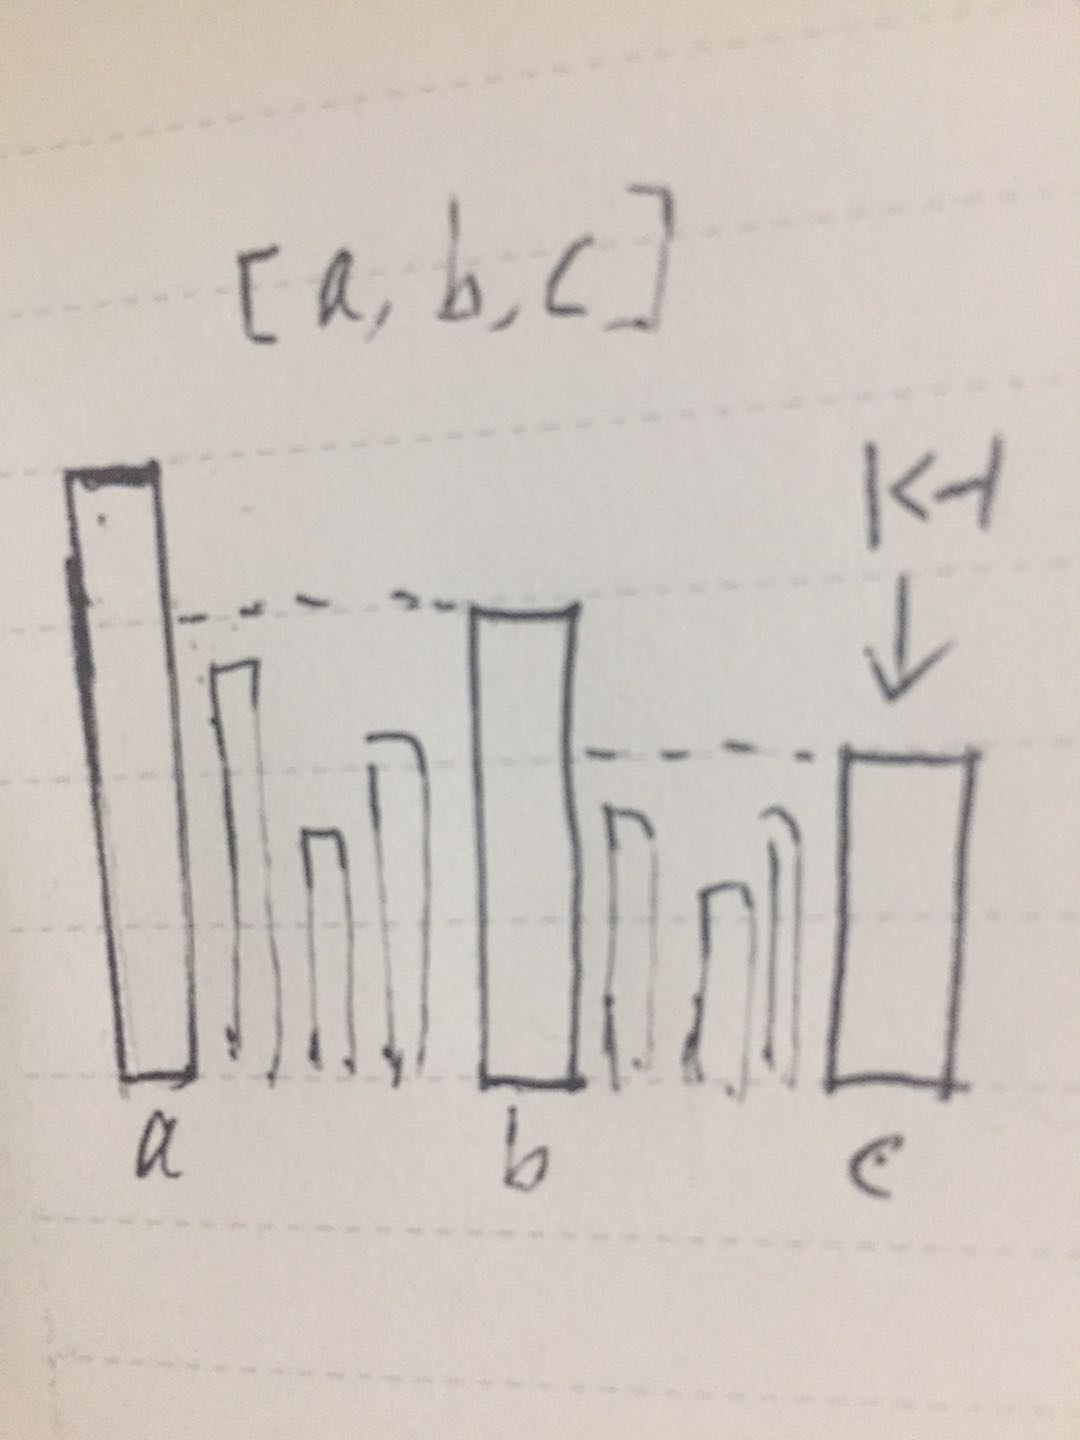 [a, b, c]
K-1
a b c